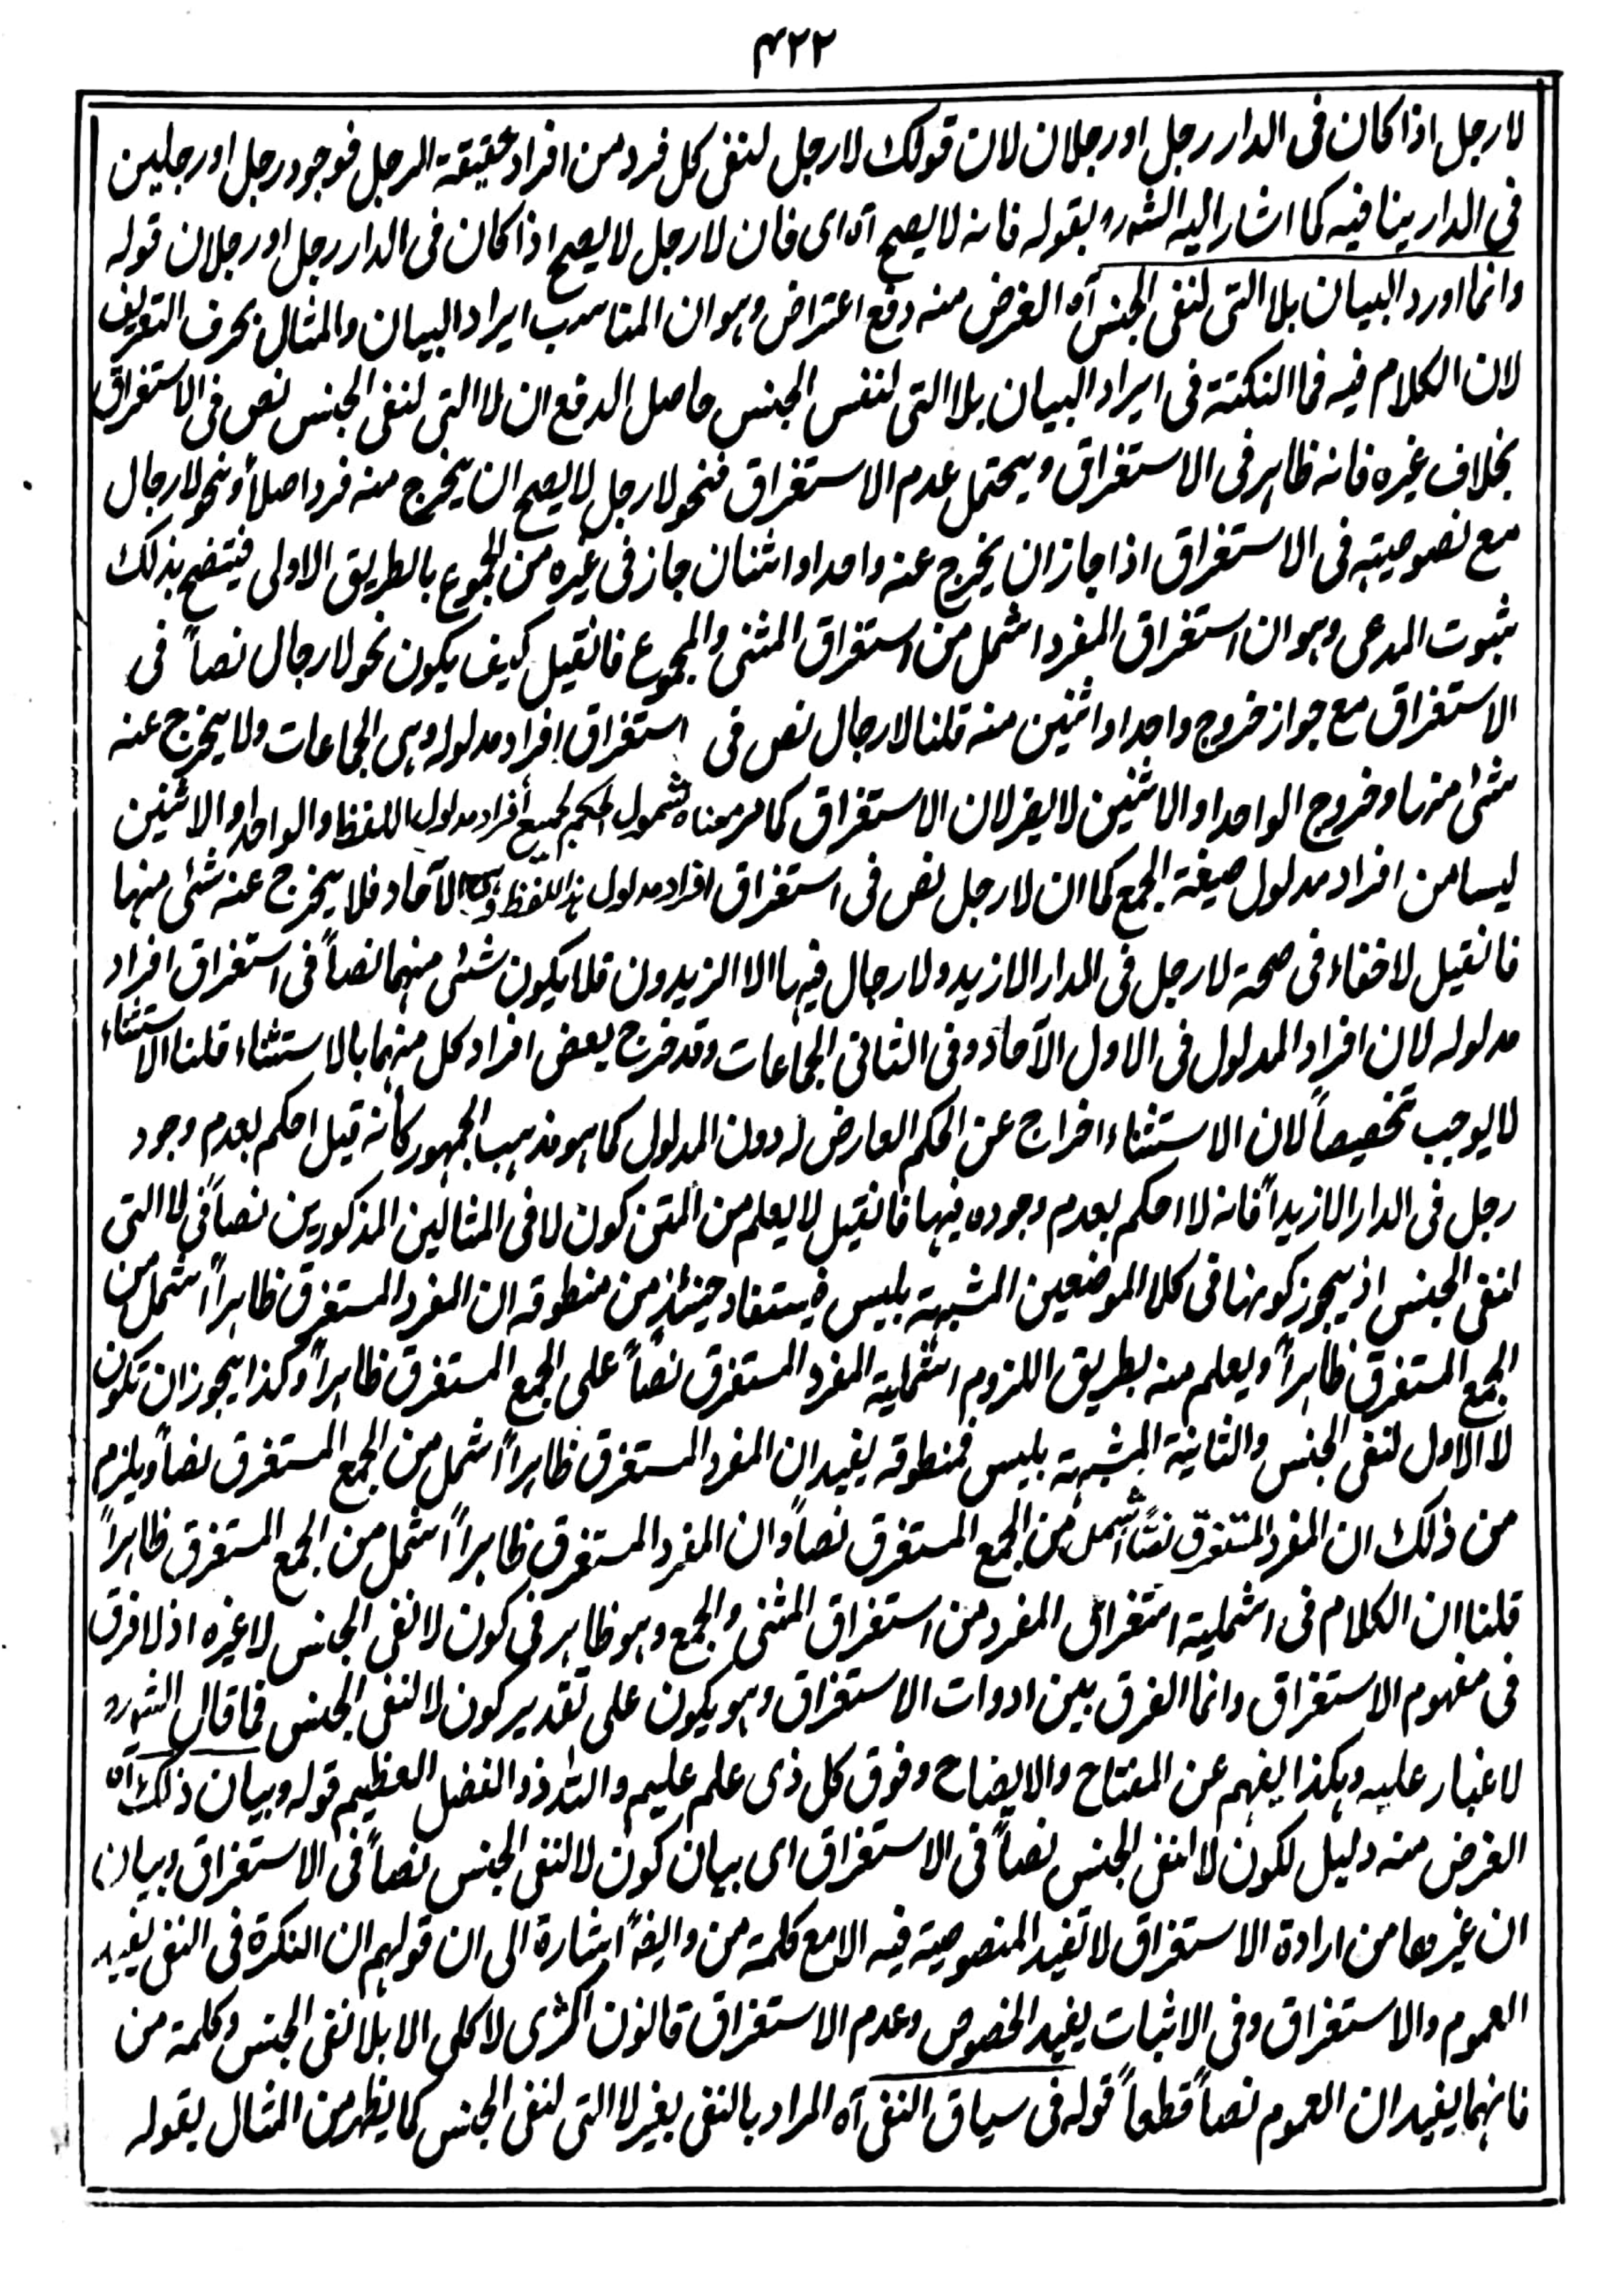 ۴۲۲
لارجل اذا كان فى الدار رجل اورجلان لان قولك لارجل لنفى كل فرد من افراد حقيقة الرجل فوجود رجل اورجلين
فى الدار ينافيه كما اشار اليه الشهرہ بقوله فانه لايصح آہ اى فان لارجل لايصح اذا كان فى الدار رجل اورجلان قوله
وانما اورد البيان بلا التى لنفى الجنس آہ الغرض منه دفع اعتراض وہو ان المناسب ايراد البيان والمثال بحرف التعريف
لان الكلام فيه فما النكتة فى ايراد البيان بلا التى لنفس الجنس حاصل الدفع ان لا التى لنفى الجنس نص فى الاستغراق
بخلاف غيره فانه ظاہر فى الاستغراق ويحتمل عدم الاستغراق فنحو لارجل لايصح ان يخرج منه فرد اصلاً ونحو لارجال
مع نصوصيته فى الاستغراق اذا جاز ان يخرج عنه واحد او اثنان جاز فى غيره من الجموع بالطريق الاولى فيتضح بذلك
ثبوت المدعى وہو ان استغراق المفرد اشمل من استغراق المثنى والمجموع فانقيل كيف يكون نحو لارجال نصاً فى
الاستغراق مع جواز خروج واحد او اثنين منه قلنا لارجال نص فى استغراق افراد مدلوله وہى الجماعات ولا يخرج عنه
شئ منها وخروج الواحد او الاثنين لايضر لان الاستغراق كما مر معناه شمول الحكم لجميع أفراد مدلول اللفظ والواحد او الاثنين
ليسا من افراد مدلول صيغة الجمع كما ان لارجل نص فى استغراق افراد مدلول ہذا اللفظ وہى الآحاد فلا يخرج عنه شئ منها
فانقيل لاخفاء فى صحة لارجل فى الدار الازيد ولارجال فيہا الا الزيدون فلا يكون شئ منهما نصاً فى استغراق افراد
مدلوله لان افراد المدلول فى الاول الآحاد وفى الثانى الجماعات وقد خرج بعض افراد كل منهما بالاستثناء قلنا الاستثناء
لايوجب تخصيصاً لان الاستثناء اخراج عن الحكم العارض له دون المدلول كما ہو مذہب الجمہور كأنه قيل احكم بعدم وجود
رجل فى الدار الازيداً فانه لا احكم بعدم وجوده فيہا فانقيل لايعلم من المتن كون لا فى المثالين المذكورين نصاً فى لا التى
لنفى الجنس اذ يجوز كونہا فى كلا الموضعين المشبہة بليس فيستفاد حينئذ من منطوقه ان المفرد المستغرق ظاہراً اشمل من
الجمع المستغرق ظاہراً ويعلم منه بطريق اللزوم اشملية المفرد المستغرق نصاً على الجمع المستغرق ظاہراً وكذا يجوز ان تكون
لا الاول لنفى الجنس والثانية المشبہة بليس فمنطوقه يفيد ان المفرد المستغرق ظاہراً اشمل من الجمع المستغرق نصاً ويلزم
من ذلك ان المفرد المستغرق نصًا اشمل من الجمع المستغرق نصاً وان المفرد المستغرق ظاہراً اشمل من الجمع المستغرق ظاہراً
قلنا ان الكلام فى اشملية استغراق المفرد من استغراق المثنى والجمع وہو ظاہر فى كون لا لنفى الجنس لاغيره اذ لا فرق
فى مفهوم الاستغراق وانما الفرق بين ادوات الاستغراق وہو يكون على تقدير كون لا لنفى الجنس فما قال الشهرہ
لاغبار عليه وہكذا يفہم عن المفتاح والايضاح وفوق كل ذى علم عليم والله ذو الفضل العظيم قوله وبيان ذلك آہ
الغرض منه دليل لكون لا لنفى الجنس نصاً فى الاستغراق اى بيان كون لا لنفى الجنس نصاً فى الاستغراق وبيان
ان غيرها من ارادة الاستغراق لا تفيد المنصوصية فيه الامع كلمة من وايضاً اشارة الى ان قولہم ان النكرة فى النفى يفيد
العموم والاستغراق وفى الاثبات يفيد الخصوص وعدم الاستغراق قانون اكثرى لاكلى الا بلا لنفى الجنس وكلمة من
فانہما يفيدان العموم نصاً قطعاً قوله فى سياق النفى آہ المراد بالنفى بغير لا التى لنفى الجنس كما يظہر من المثال بقوله